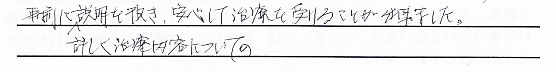 事前に説明を頂き、安心して治療を受けることが出来ました。
詳しく治療内容についての